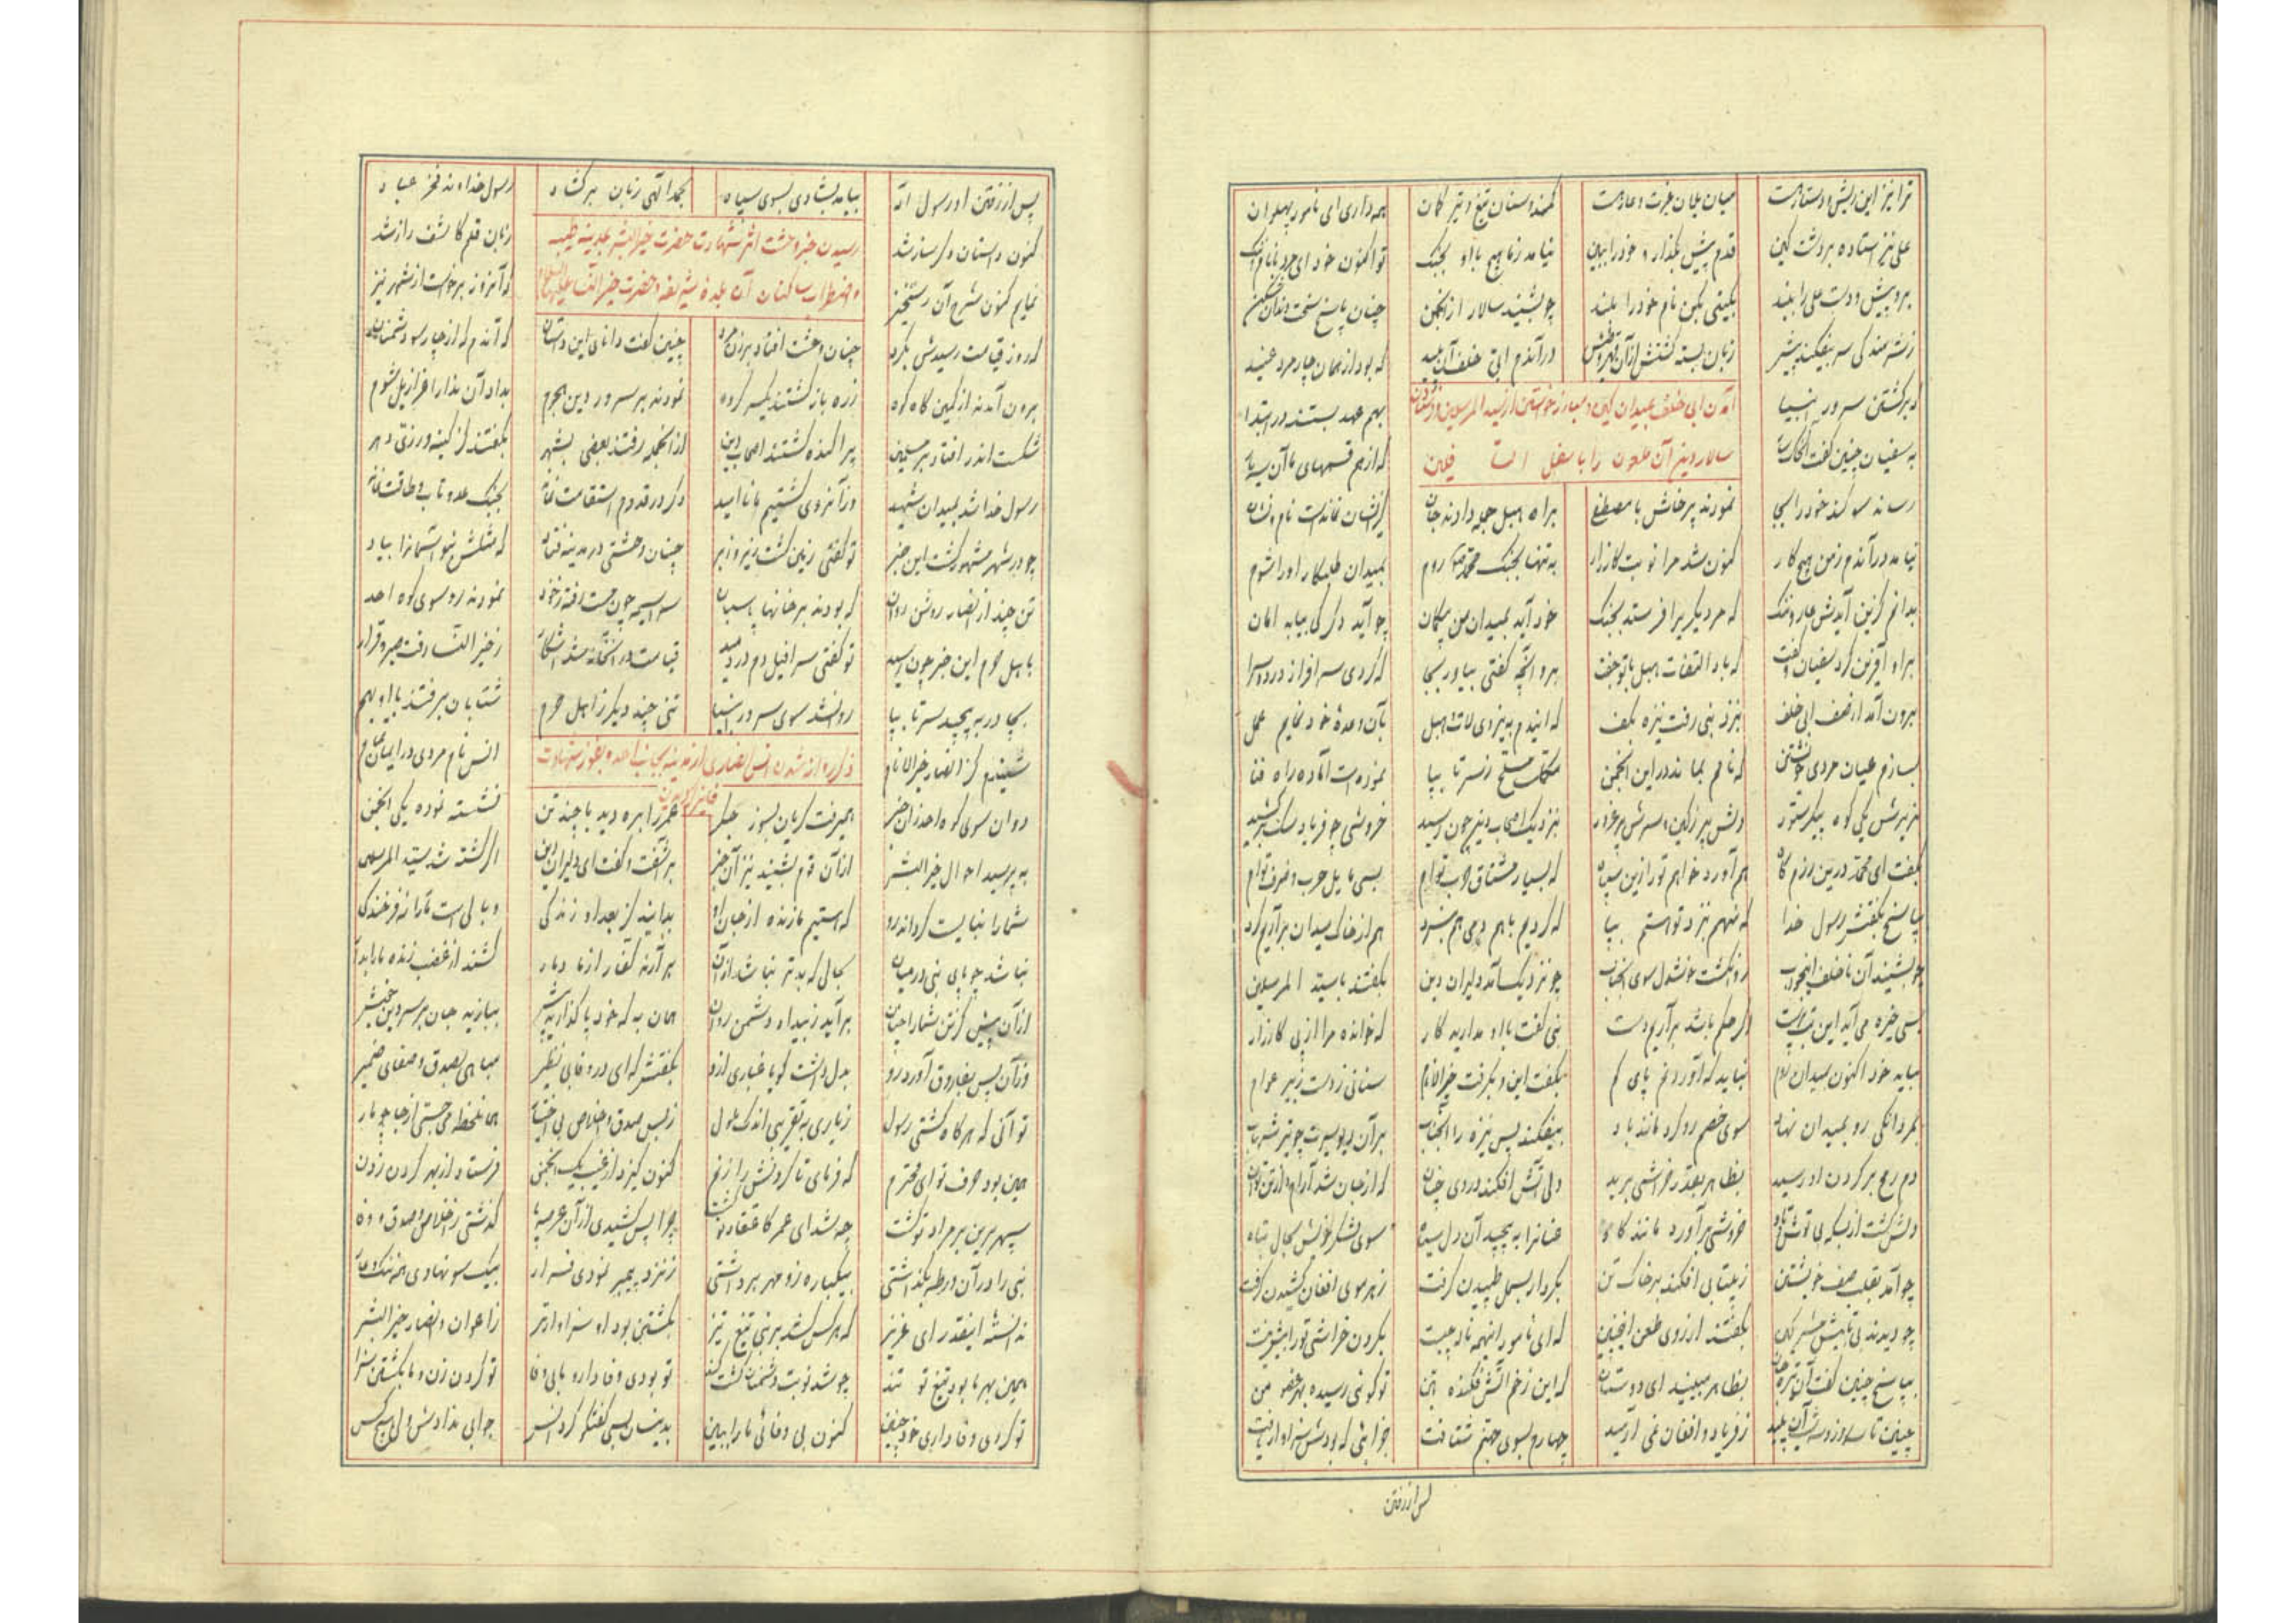 ترا نیز این ریش و دستار هست میان یلان غیرت و عار هست کمند و سنان تیغ و تیر و کمان همه داری ای نامور پهلوان
علی نیز استاده بر دشت کین قدم پیش بگذار و خود را ببین نیامد ز ما هیچ با او بجنگ تو اکنون خود ای مرد با نام و ننگ
برو پیش و دست علی را ببند بگیتی بکن نام خود را بلند چو بشنید سالار از انجمن چنان پاسخ سخت دندان شکن
ز شرمندگی سر بیفکند پیش زبان بسته گشتش از آن درآندم ابی خلف آن پلید که بود از همان چار مرد عنید
که بر کشتن سرور انبیا بهم عهد بستند در ابتدا
آمدن ابی خلف بمیدان کین و مبارز خواستن از سید المرسلین
به سفیان چنین گفت که از هم قسمهای ما آن سه تا
سالار دین آن ملعون را باسفل السافلین
رساند سوگند خود را بجا نمودند پرخاش با مصطفی براه هبل جمله دادند جان کز ایشان نماندست نام و نشان
نیامد درآندم ز من هیچ کار کنون شد مرا نوبت کارزار به تنها بجنگ محمد روم بمیدان طلبکار او را شوم
بدانم کزین آیدش عار و ننگ که مرد دیگر را فرستد بجنگ خود آید بمیدان من بیگمان چو آید دگر کی بیابد امان
براو آفرین کرد سفیان و گفت که باد التفات هبل با تو جفت برو آنچه گفتی بیاور بجا که گردی سرافراز در دو سرا
برون آمد از صف ابی خلف بنزد نبی رفت نیزه بکف که ایندم به نیروی لات و هبل بآن وعدهٔ خود نمایم عمل
بسازم عیان مردی خویشتن که نامم بماند در این انجمن مکمل مسلح ز سر تا بپا نموده‌ست آماده راه فنا
بزیرش یکی کوه پیکر ستور دلش پر ز کین و سرش پر غرور بنزدیک اصحاب دین چون رسید خروشی چو فریاد سگ برکشید
بگفت ای محمد درین رزم گاه هم آورد خواهم تو را زین سپاه که بسیار مشتاق حرب توام بسی مایل حرب و ضرب توام
بپاسخ بگفتش رسول خدا که منهم بنزد تو استم بپا که گردیم با هم دمی هم نبرد هم از خاک میدان برآریم گرد
چو بشنید آن ناخلف این جواب روان گشت خوشدل سوی آنجناب چو نزدیک آمد دلیران دین بگفتند با سید المرسلین
بسی خیره می‌آید این بت پرست اگر حکم باشد برآریم دست نبی گفت با او مدارید کار که خوانده مرا از پی کارزار
بیاید خود اکنون بمیدان روم نباید که آورد نم پای کم بگفت این و بگرفت خیر الانام سنانی ز دست زبیر عوام
بمردانگی رو بمیدان نهاد سوی خصم رو کرد مانند باد بیفکند پس نیزه را آنجناب بر آن دیو سیرت چو تیر شهاب
دم رمح بر گردن او رسید بظاهر بقدر خراشی برید ولی آتش افکند در وی چنان که از جان شد آرام و از تن توان
دلش گشت از بیم خروشی برآورد مانند گاو عنان را به پیچید آن دل سیاه سوی لشکر خویش بحال تباه
چو آمد بقلب صف خویشتن ز بیتابی افکند بر خاک تن بکردار بسمل طپیدن گرفت ز هر سوی افغان کشیدن گرفت
چو دیدند بیتابیش مشرکین بگفتند از روی طعن اینچنین که ای نامور اینهمه ناله چیست بگردن خراشی تو را بیش نیست
بپاسخ چنین گفت آن تیره جان بظاهر مبینید ای دوستان که این زخم آتش فکنده بتن تو گوئی رسیده بهر عضو من
چنین تا سه روز و سه شب آن پلید ز فریاد و افغان نمی آرمید چهارم بسوی جهنم شتافت جزائی که بودش سزاوار یافت
پس از رفتن
پس از رفتن او رسول اله بیامد بشادی بسوی سپاه بحمد الهی زبان برگشاد رسول خداوند فخر عباد
رسیدن خبر وحشت اثر شهادت حضرت خیر البشر بمدینه طیبه
کنون داستان دگر ساز شد زبان قلم کاشف راز شد
و اضطراب ساکنان آن بلدهٔ شریفه و حضرت خیر النسا علیها السلام
نمایم کنون شرح آن رستخیز که آنروز برخاست از شهر نیز
که روز قیامت رسیدش بگرد چنان وحشت افتاد بر زن و مرد چنین گفت دانای این داستان که آندم که از چار سو دشمنان
برون آمدند از کمین گاه کوه زره باز گشتند یکسر گروه نمودند بر سرور دین هجوم بداد آن ندا را عزازیل شوم
شکست اندر افتاد بر مسلمین پراکنده گشتند اصحاب دین از آنجمله رفتند بعضی بشهر بگفتند کز کینه ورزی دهر
رسول خدا شد بمیدان شهید وز آنروی گشتیم ما نا امید دگر در قدوم استقامت نماند بجنگ عدو تاب و طاقت نماند
چو در شهر مشهور گشت این خبر تو گفتی زمین گشت زیر و زبر چنان وحشتی در مدینه فتاد که مثلش نبود آسمان را بیاد
تن چند از انصار روشن روان که بودند بر خانها پاسبان سراسیمه چون جست رفته ز خود نمودند رو سوی کوه احد
باهل حرم این خبر چون رسید تو گفتی سرافیل دم در دمید قیامت در آنخانه شد آشکار ز خیر النسا رفت صبر و قرار
بچادر به پیچید سر تا بپا روان شد سوی سرور انبیا تنی چند دیگر ز اهل حرم شتابان برفتند با او بهم
ذکر روانه شدن انس انصاری از مدینه بجانب احد و بفوز شهادت فایز گردیدن
شنیدم کز انصار خیر الانام انس نام مردی در ایمان تمام
دوان سوی کوه احد زان خبر همیرفت گریان بسوز جگر عمر را بره دید با چند تن نشسته نموده یکی انجمن
به پرسید احوال خیر البشر از آن قوم بشنید نیز آن خبر برآشفت و گفت ای دلیران دین اگر کشته شد سید المرسلین
شما را نبایست گرداند رو که استیم ما زنده از جان او بدانید کز بعد او زندگی وبالی است ما را نه فرخندگی
نباشد چو پای نبی در میان بحالی که بدتر نباشد از آن برآرند کفار از ما دمار کشند از غضب زنده ما را بدار
از آن پیش کز تن شما را چنان برآید ز بیداد دشمن روان همان به که خود پا گذارید پیش ببازید جان بر سر دین خویش
وز آن پس بفاروق آورد رو بدل داشت گویا غباری از او بگفتش که ای در وفا بی نظیر مباهی بصدق و صفای ضمیر
تو آنی که هر گاه گشتی رسول ز یاری به تقریبی اندک ملول ز بس صدق و اخلاص بی اختیار همانلحظه می جستی از جا چو نار
همین بود حرف تو ای محترم که فرمای تا گردنش را زنم کنون کیزد از غیب یک انجمن فرستاد از بهر گردن زدن
سپهر برین بر مراد تو گشت چه شد ای عمر کاعتقاد تو گشت چرا پس کشیدی از آن عرصه پا گذشتی ز اخلاص و صدق و وفا
نبی را در آن ورطه بگذاشتی بیکباره زو مهر برداشتی ز نزد پیمبر نمودی فرار بیک سو نهادی همه ننگ و عار
ندانسته اینقدر ای عزیز که هر کس کشد بر نبی تیغ تیز بکشتن بود او سزاوارتر ز اعوان و انصار خیر البشر
همین بهر ما بود تیغ تو تند چو شد نوبت دشمنان گشت کند تو بودی وفادار و ما بی وفا تو گردن زن و ما بکشتن سزا
تو کردی وفاداری خود چنین کنون بی وفائی ما را ببین بدینسان بسی گفتگو کرد انس جوابی ندادش ولی هیچ کس